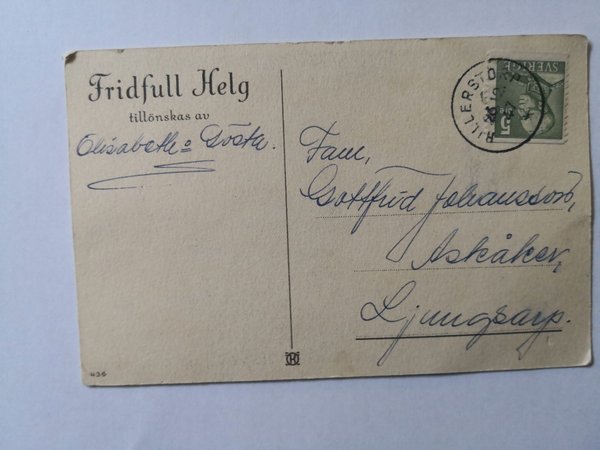 Fridfull Helg
tillönskas av
Elisabeth o Gösta.
SVERIGE
5
HILLERSTORP
Fam,
Gottfrid Johansson,
Askåker,
Ljungsarp.
436